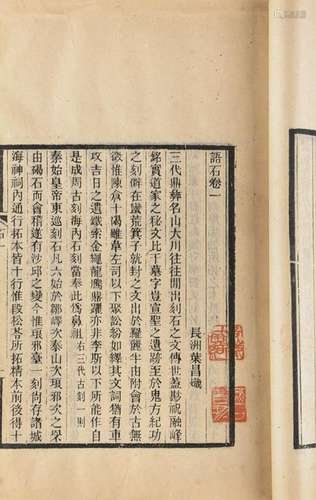 語石卷一
長洲葉昌熾
三代鼎彝名山大川往往間出刻石之文傳世蓋尠祝融峰
銘實道家之秘文比干墓字豈宣聖之遺跡至於鬼方紀功
之刻僻在蠻荒箕子就由附會於古無
徵惟陳倉十碣雖韋左司以下聚訟紛如繹其文詞猶有車
攻吉日之遺鐵索金繩龍騰鼎躍亦非李斯以下所能作自
是成周古刻海內石刻當奉此為鼻祖右三代古刻一則
秦始皇帝東巡刻石凡六始於鄒嶧次泰山次琅邪次之罘
由碣石而會稽遂有沙邱之變今惟琅邪臺一刻尚存諸城
海神祠內通行拓本皆十行惟段松苓所拓精本前後得十